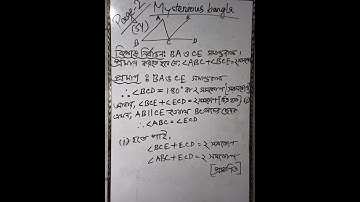 Page-2
Mysterious bangla
(54)
A E
B C D
বিশেষ নির্বচনঃ BA ও CE সমান্তরাল।
প্রমাণ করতে হবে যে, ∠ABC+∠BCE=২সমকোণ
প্রমাণ : BA ও CE সমান্তরাল
∴ ∠BCD = 180° বা ২ সমকোণ
∠BCE + ∠ECD = ২ সমকোণ (i)
AB॥CE
∴ ∠ABC = ∠ECD
(i) হতে পাই,
∠BCE + ECD = ২ সমকোণ
∠ABC + ECD = ২ সমকোণ
[প্রমাণিত]